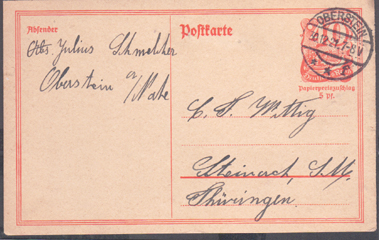 Absender
Postkarte
Abs. Julius Schmelcher
Oberstein a/Nahe
OBERSTEIN
10
Papierpreiszuschlag
5 Pf.
C. F. Wittig
Steinach, S.M.
Thüringen.